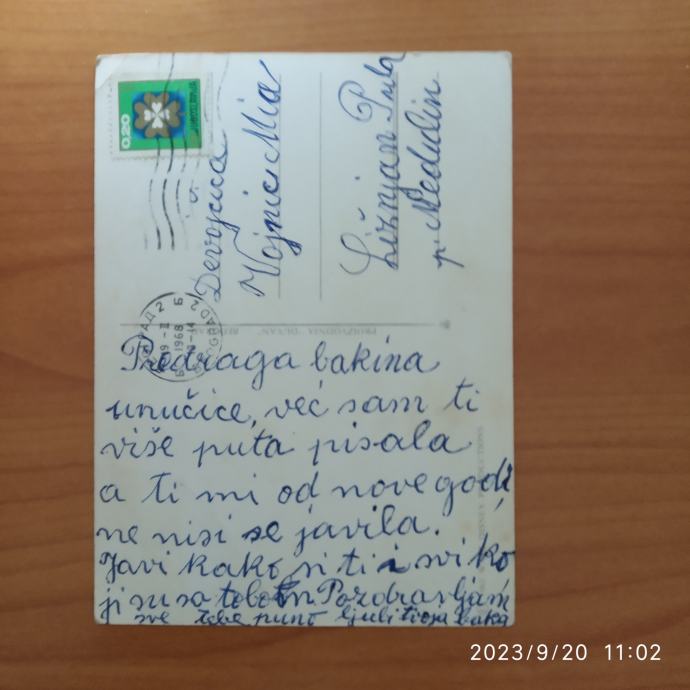 0.20
Devojčica
Vojnić Mia
Ližnjan Pula
p. Medulin
BEOGRAD 2
1968
PROIZVODNJA "DUŠAN" BEOGRAD
DISNEY PRODUCTIONS
Predraga bakina
unučice, već sam ti
više puta pisala
a ti mi od nove godi
ne nisi se javila.
Javi kako si ti i svi ko
ji su sa tobom Pozdravljam
sve tebe puno ljubi tvoja baka
2023/9/20 11:02